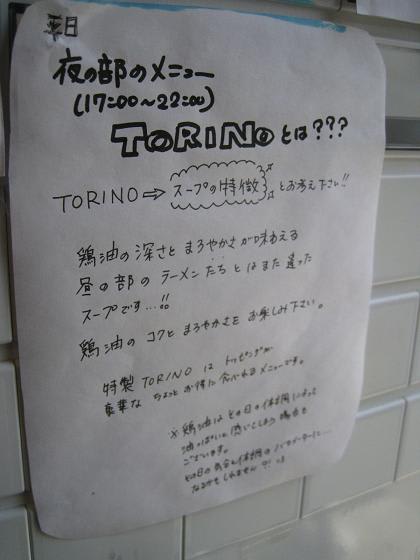 平日
夜の部のメニュー
(17:00~22:00)
TORINOとは???
TORINO⇒スープの特徴とお考え下さい!!
鶏油の深さとまろやかさが味わえる
昼の部のラーメンたちとはまた違った
スープです…!!
鶏油のコクとまろやかさをお楽しみ下さい。
特製TORINOはトッピングが
豪華なちょっとお得に食べれるメニューです。
※鶏油はその日の体調によって
油っぽいと感じてしまう場合も
ございます。
その日の気分と体調のバロメーターに…
なるかもしれません?!